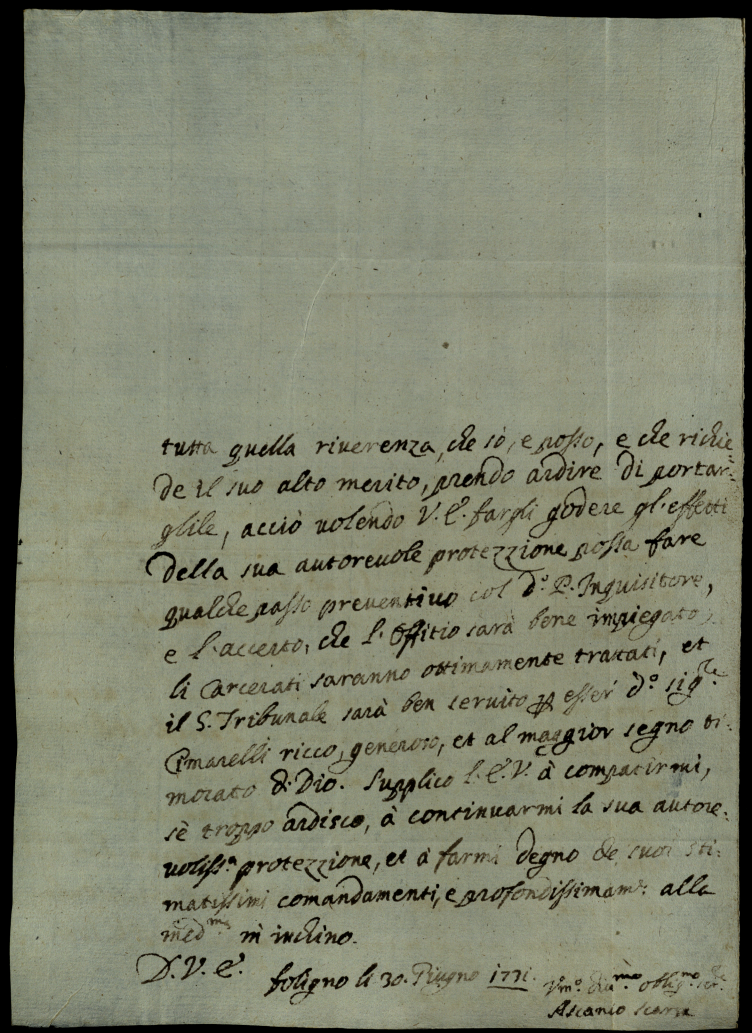 tutta quella riuerenza, che sò, e posso, e che richie=
de il suo alto merito, prendo ardire di portar=
glile, acciò uolendo V. E. fargli godere gl'effetti
della sua autoreuole protezzione possa fare
qualche passo preventiuo col dº. P. Inquisitore,
e l'accerto, che l'Offitio sarà bene impiegato
li Carcerati saranno ottimamente trattati, et
il S. Tribunale sarà ben seruito p esser dº. sigre.
Cimarelli ricco, generoso, et al maggior segno ti=
morato di Dio. Supplico l'E. V. à compatirmi,
sè troppo ardisco, à continuarmi la sua autore=
uolissa. protezzione, et à farmi degno de suoi sti=
matissimi comandamenti, e profondissimamte. alla
medma. m'inchino.
D. V. E.
foligno li 30. Giugno 1731.
Vmo. diumo. obligmo. serre.
Ascanio